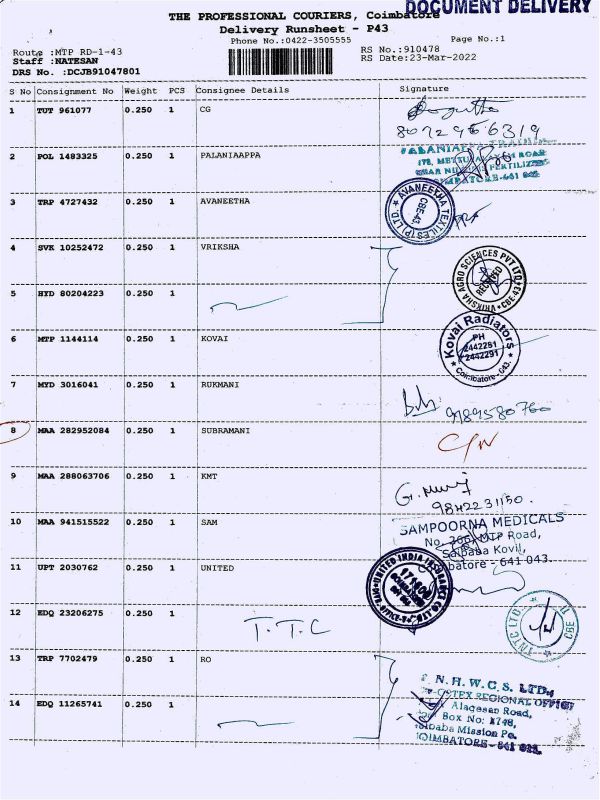 DOCUMENT DELIVERY
THE PROFESSIONAL COURIERS, Coimbatore
Delivery Runsheet - P43
Phone No.:0422-3505555
Page No.:1
Route :MTP RD-1-43
RS No.:910478
Staff :NATESAN
RS Date:23-Mar-2022
DRS No. :DCJB91047801
S No Consignment No Weight PCS Consignee Details Signature
1 TUT 961077 0.250 1 CG
8072966319
2 POL 1483325 0.250 1 PALANIAAPPA
3 TRP 4727432 0.250 1 AVANEETHA
AVANEETHA TEXTILES (P) LTD. CBE-43.
4 SVK 10252472 0.250 1 VRIKSHA
VRIKSHA AGRO SCIENCES PVT LTD CBE-43
RECEIVED
5 HYD 80204223 0.250 1
6 MTP 1144114 0.250 1 KOVAI
Kovai Radiators
PH
2442281
2442291
Coimbatore - 043.
7 MYD 3016041 0.250 1 RUKMANI
9789580760
8 MAA 282952084 0.250 1 SUBRAMANI
9 MAA 288063706 0.250 1 KMT
9842231150.
10 MAA 941515522 0.250 1 SAM
SAMPOORNA MEDICALS
MTP Road,
Saibaba Kovil,
Coimbatore - 641 043.
11 UPT 2030762 0.250 1 UNITED
UNITED INDIA INSURANCE CO LTD
12 EDQ 23206275 1 0.250
T.T.C
TNTC LTD
CBE
13 TRP 7702479 0.250 1 RO
N.H.W.C.S. LTD.,
CO-OPTEX REGIONAL OFFICE
Alagesan Road,
Box No: 1748,
Saibaba Mission Po.
COIMBATORE - 641
14 EDQ 11265741 0.250 1